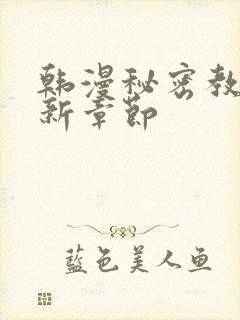 韩漫秘密教
新章节
蓝色美人鱼